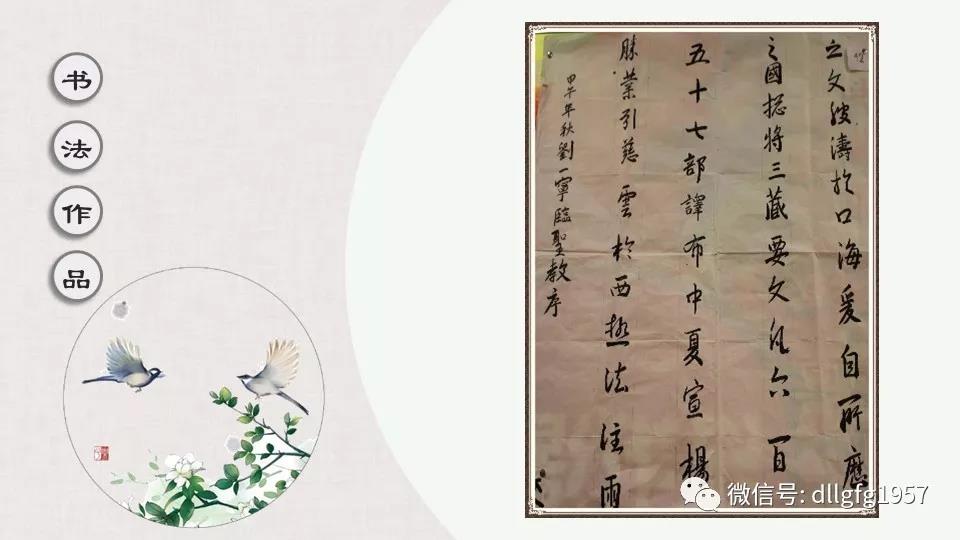 书法作品
之文波濤於口海爰自所歷
之國捴將三藏要文凡六百
五十七部譯布中夏宣楊
勝業引慈雲於西極法注雨
甲午年秋劉一寧臨聖教序
微信号: dllgfg1957